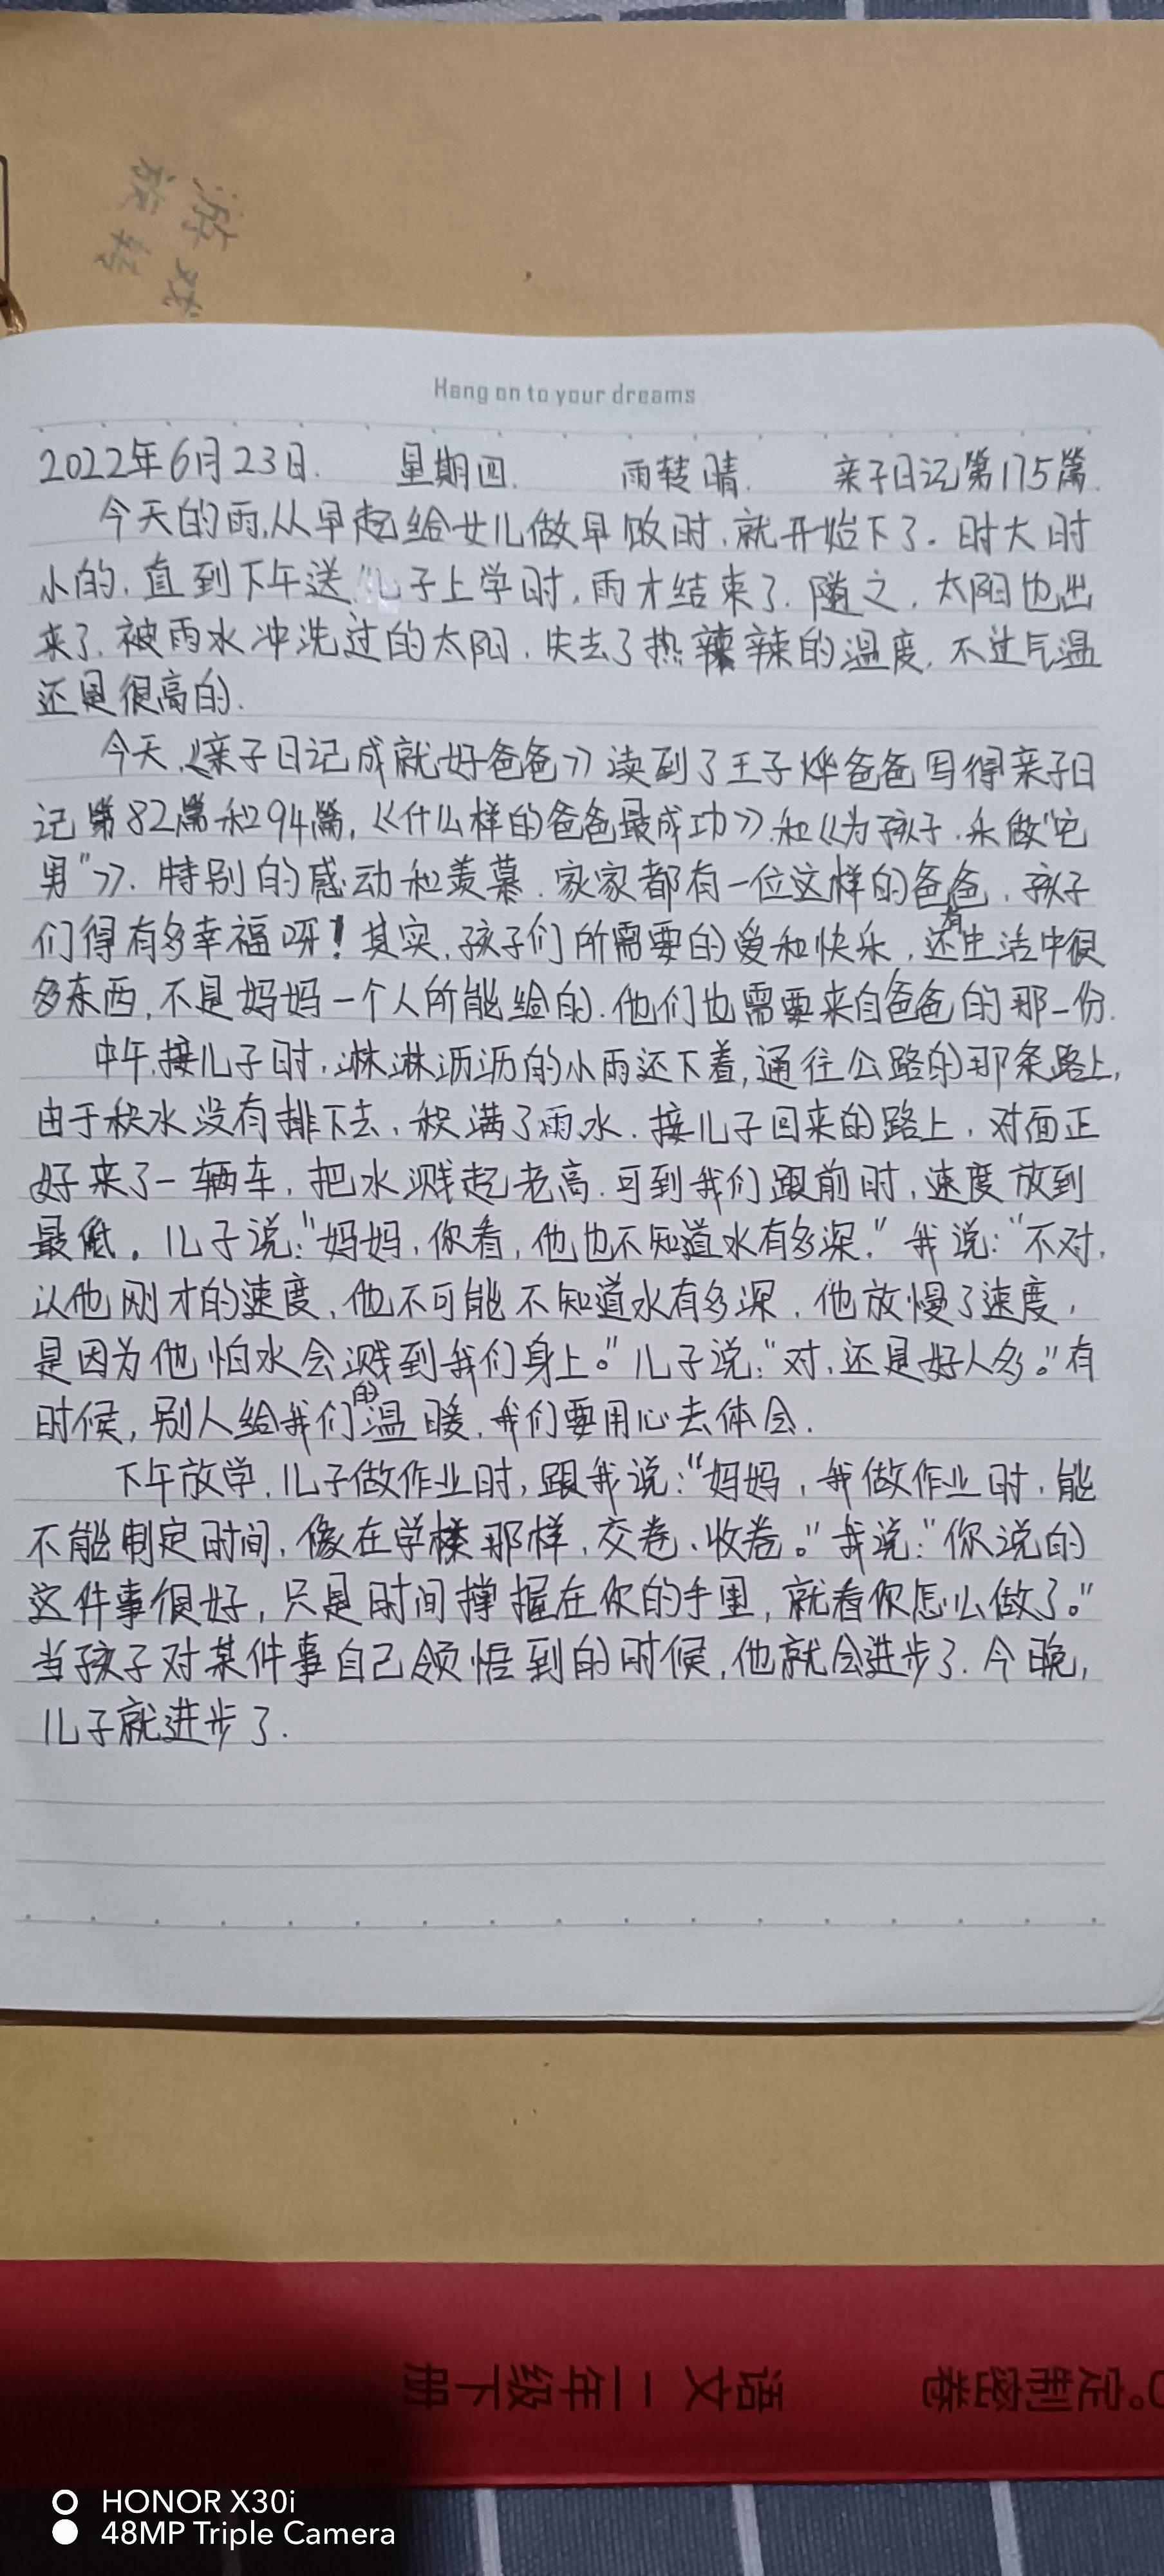 游戏
放转
Hang on to your dreams
2022年6月23日. 星期四. 雨转晴. 亲子日记第175篇.
今天的雨,从早起给女儿做早饭时,就开始下了。时大时
小的,直到下午送儿子上学时,雨才结束了.随之,太阳也出
来了.被雨水冲洗过的太阳,失去了热辣辣的温度,不过气温
还是很高的.
今天,《亲子日记成就好爸爸》读到了王子烨爸爸写得亲子日
记第82篇和94篇,《什么样的爸爸最成功》.和《为孩子.永做"宅
男"》.特别的感动和羡慕.家家都有一位这样的爸爸,孩子
们得有多幸福呀!其实,孩子们所需要的爱和快乐,还有生活中很
多东西,不是妈妈一个人所能给的.他们也需要来自爸爸的那一份.
中午,接儿子时,淋淋沥沥的小雨还下着,通往公路的那条路上,
由于积水没有排下去,积满了雨水.接儿子回来的路上,对面正
好来了一辆车,把水溅起老高.可到我们跟前时,速度放到
最低。儿子说:"妈妈,你看,他也不知道水有多深."我说:"不对,
以他刚才的速度,他不可能不知道水有多深,他放慢了速度,
是因为他怕水会溅到我们身上。"儿子说:"对,还是好人多。"有
时候,别人给我们的温暖,我们要用心去体会.
下午放学,儿子做作业时,跟我说:"妈妈,我做作业时,能
不能制定时间,像在学校那样,交卷、收卷。"我说:"你说的
这件事很好,只是时间撑握在你的手里,就看你怎么做了。"
当孩子对某件事自己领悟到的时候,他就会进步了.今晚,
儿子就进步了.
定制密卷 语文 二年级下册
HONOR X30i
48MP Triple Camera